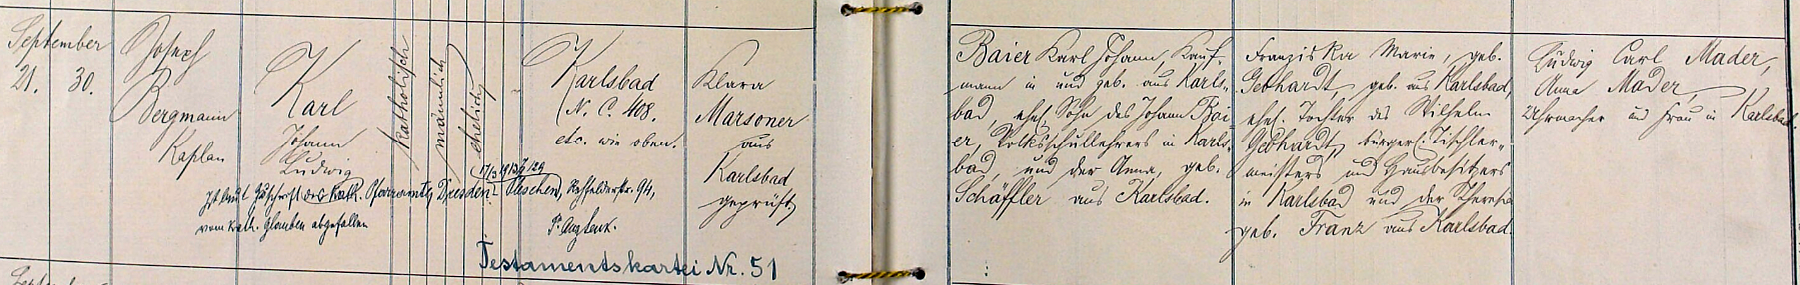 September
21. 30.
Josef
Bergmann
Kaplan
Karl
Johann
Ludwig
katholisch
männlich
ehelich
Karlsbad
(N. C. 408.
etc. wie oben.
Klara
Marsoner
aus
Karlsbad
geprüft
17/3 1913 Z/129
Ist laut Zuschrift des kath. Pfarramts Dresden-Pieschen, 94,
vom kath. Glauben abgefallen
Testamentskartei Nr. 51
Baier Karl Johann, Kauf-
mann in und geb. aus Karls-
bad, ehel. Sohn des Johann Bai-
er, Volksschullehrers in Karls-
bad, und der Anna, geb.
Schäffler aus Karlsbad.
Franziska Marie, geb.
Gebhardt, geb. aus Karlsbad,
ehel. Tochter des Wilhelm
Gebhardt, bürgerl. Tischler-
meisters und Hausbesitzers
in Karlsbad und der Theresia
geb. Franz aus Karlsbad.
Ludwig Carl Mader,
Anna Mader,
Uhrmacher und Frau in Karlsbad.
September